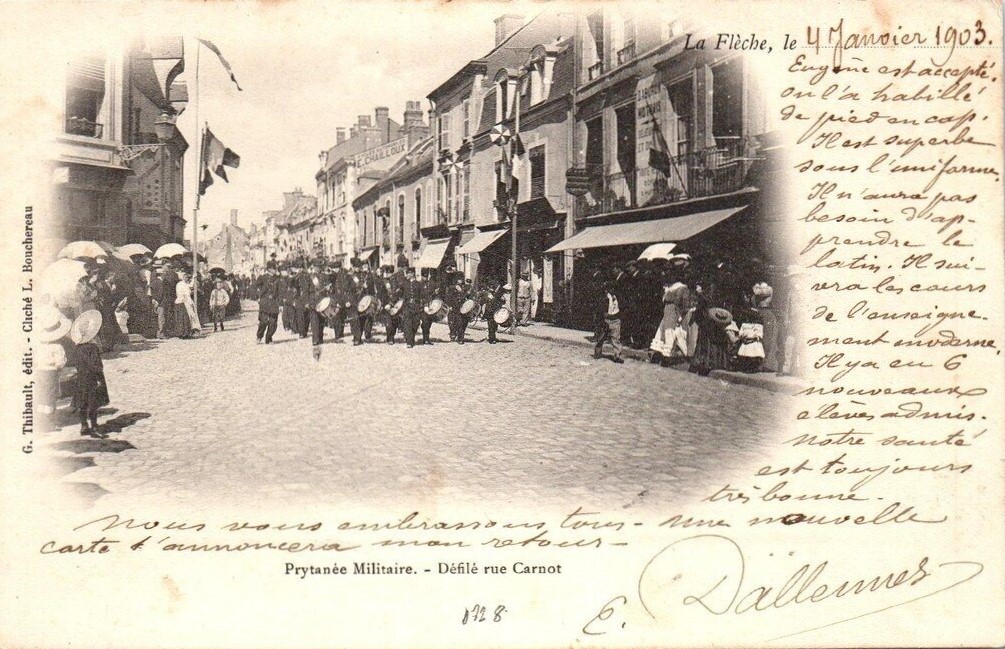 La Flèche, le 4 Janvier 1903.
Eugène est accepté,
on l'a habillé
de pied en cap.
Il est superbe
sous l'uniforme.
Il n'aura pas
besoin d'ap-
prendre le
latin. Il sui-
vra les cours
de l'enseigne-
ment moderne,
Il y a eu 6
nouveaux
élèves admis.
Notre santé
est toujours
très bonne.
Nous vous embrassons tous - Une nouvelle
carte t'annoncera mon retour -
E. Dällennes
Prytanée Militaire. - Défilé rue Carnot
0728
G. Thibault, édit. - Cliché L. Bouchereau
E. CHAILLOUX
NOTAIRE